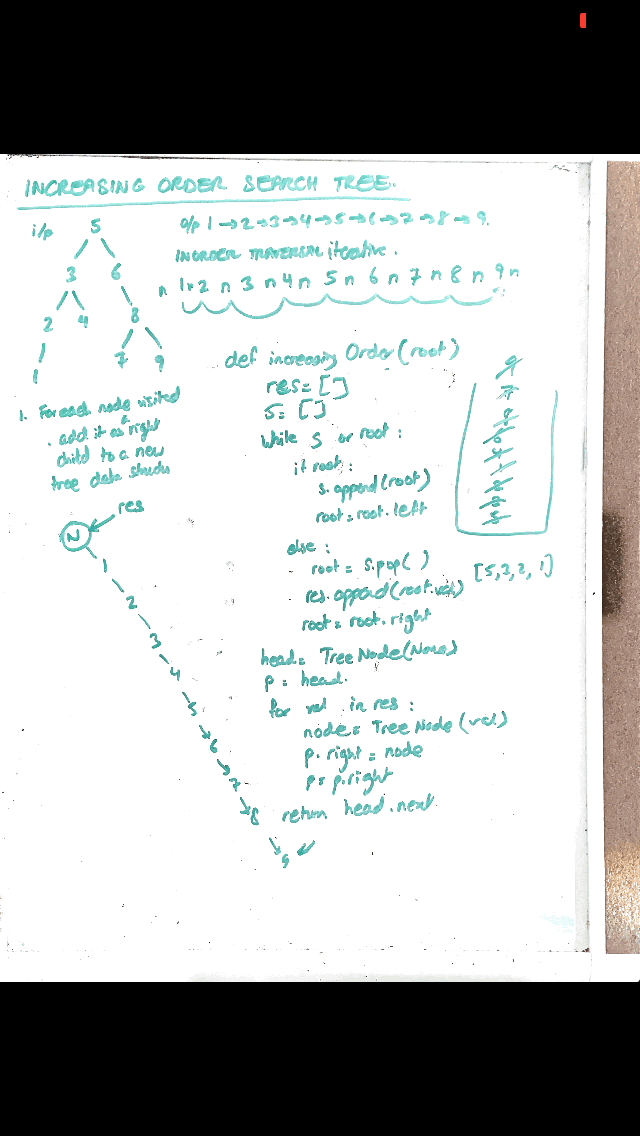 INCREASING ORDER SEARCH TREE.
i/p
5
3 6
2 4 8
1 7 9
o/p 1 → 2 → 3 → 4 → 5 → 6 → 7 → 8 → 9.
INORDER TRAVERSAL iterative.
n 1 n 2 n 3 n 4 n 5 n 6 n 7 n 8 n 9 n
1. For each node visited
. add it as right
child to a new
tree data
def increasing Order(root)
res = []
S = []
while S or root :
if root :
s.append(root)
root = root.left
else :
root = s.pop( )
res.append(root.val)
root = root.right
[5,3,2,1]
head = TreeNode(None)
p = head.
for val in res :
node = TreeNode(val)
p.right = node
p = p.right
return head.next
res
N
1
2
3
4
5
6
7
8
9